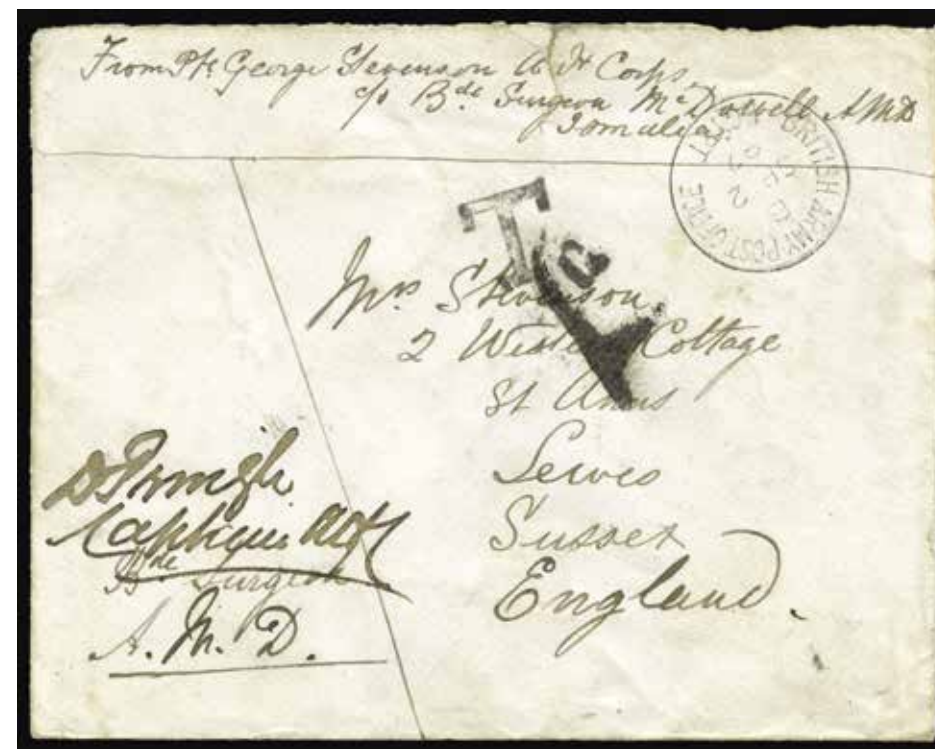 From Pte George Stevenson A H Corps
c/o Bde Surgeon McDowell AMD
Ismailia
BRITISH ARMY POST OFFICE
SP 2
T
Mrs Stevenson
2 Cottage
St Anns
Lewes
Sussex
England.
Captain AHC
Bde Surgeon
A. M. D.